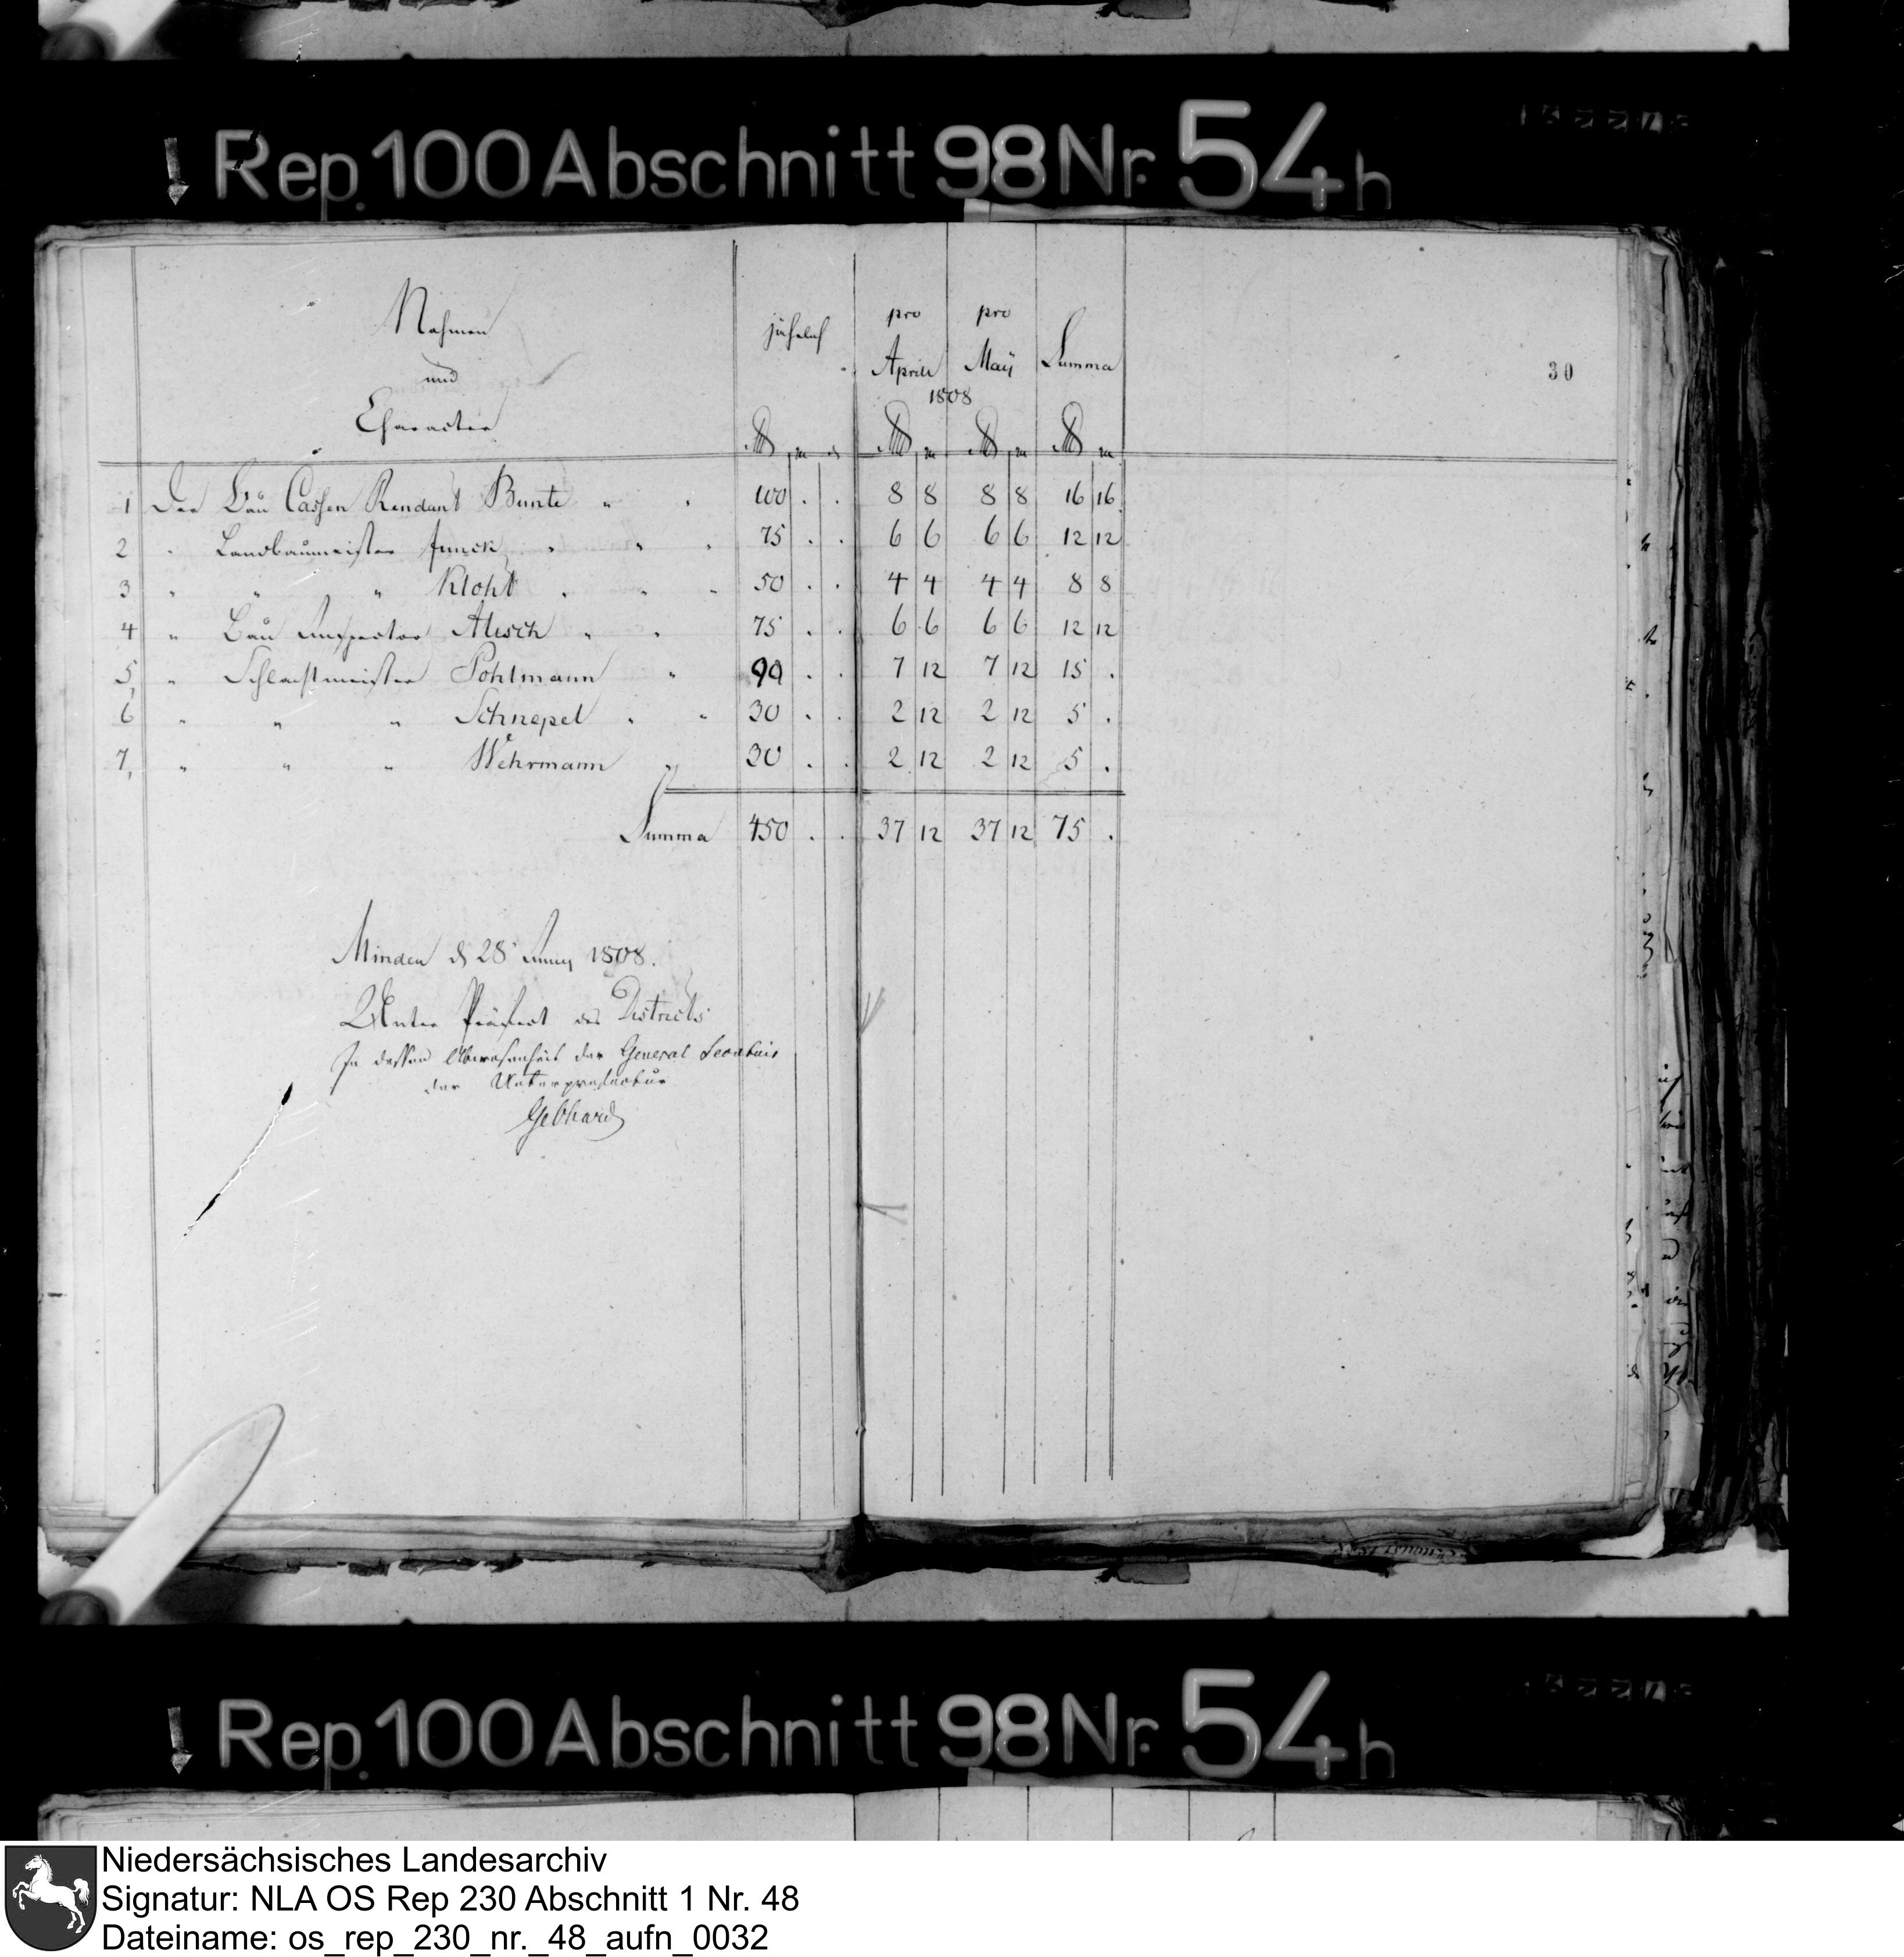 Rep. 100 Abschnitt 98 Nr. 54 h
30
Nahmen
und
Character
jährlich
pro
Aprill
pro
May
1808
Summa
1 Der Bau Cassen Rendant Bunte " " 100 . . 8 8 8 8 16 16
2 " Landbaumeister Funck " " " 75 . . 6 6 6 6 12 12
3 " " " Kloht " " " 50 . . 4 4 4 4 8 8
4 " Bau Inspector Alisch " " 75 . . 6 6 6 6 12 12
5, " Schlachtmeister Pohlmann " 90 . . 7 12 7 12 15 .
6 " " " Schnepel " " 30 . . 2 12 2 12 5 .
7, " " " Wehrmann " 30 . . 2 12 2 12 5 .
Summa 450 . . 37 12 37 12 75 .
Minden d 28 Juny 1808.
Unter Präfect des Districts
In dessen Abwesenheit der General Secretair
der Unterpraefectur
Gebhard
Rep. 100 Abschnitt 98 Nr. 54 h
Niedersächsisches Landesarchiv
Signatur: NLA OS Rep 230 Abschnitt 1 Nr. 48
Dateiname: os_rep_230_nr._48_aufn_0032